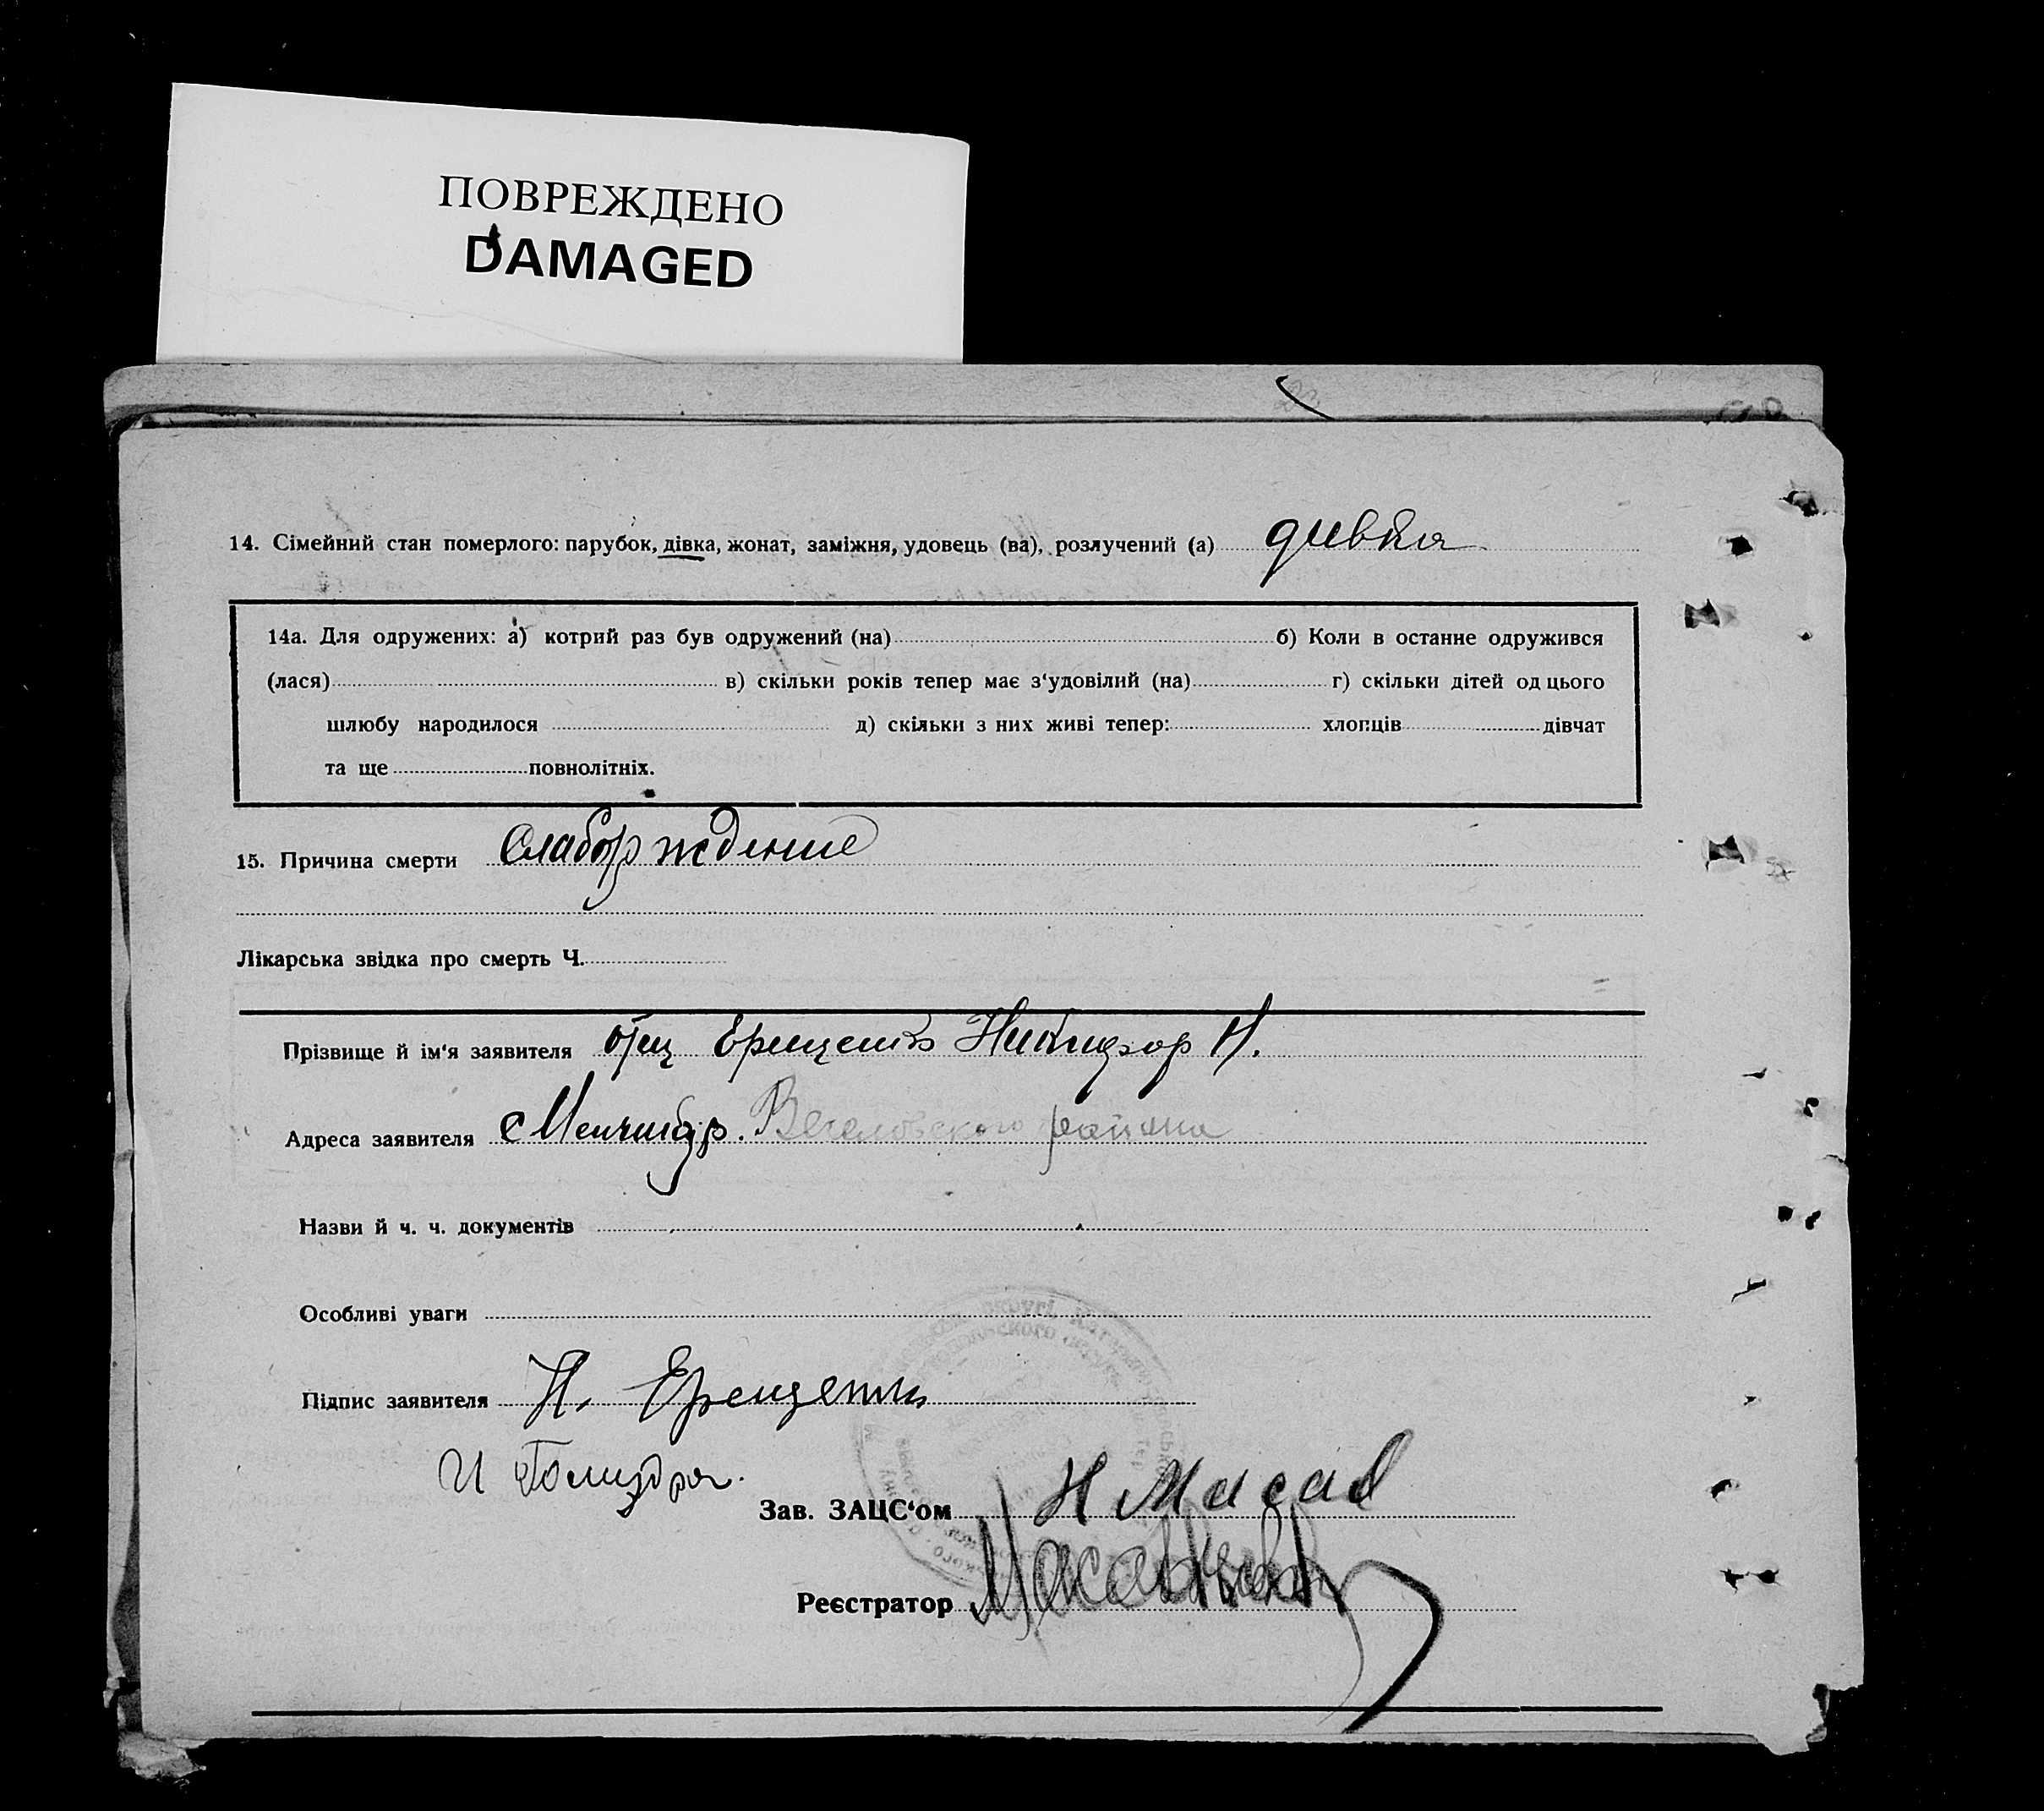 ПОВРЕЖДЕНО
DAMAGED
14. Сімейний стан померлого: парубок, дівка, жонат, заміжня, удовець (ва), розлучений (а) дивка
14а. Для одружених: а) котрий раз був одружений (на) б) Коли в останне одружився
(лася) в) скільки років тепер має з‘удовілий (на) г) скільки дітей од цього
шлюбу народилося д) скільки з них живі тепер: хлопців дівчат
та ще повнолітніх.
15. Причина смерти
Лікарська звідка про смерть Ч.
Прізвище й ім‘я заявителя отец Ерещенко Никифор Н.
Адреса заявителя с Менчикур. Веселовского района
Назви й ч. ч. документів
Особливі уваги
Підпис заявителя Н. Ерещенко
И
Зав. ЗАЦС‘ом Н Масав
Реєстратор